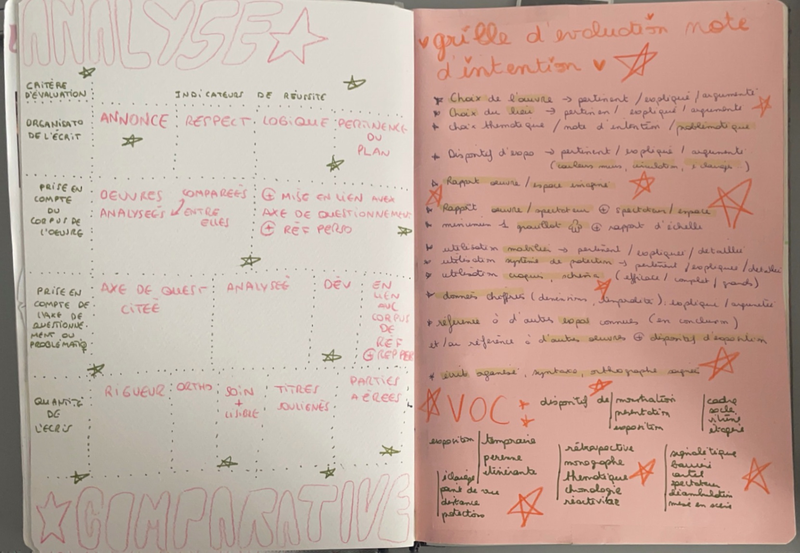 ANALYSE
CRITÈRE
D'ÉVALUATION
INDICATEURS DE RÉUSSITE
ORGANISATO
DE L'ÉCRIT
ANNONCE
RESPECT
LOGIQUE
PERTINENCE
DU
PLAN
PRISE EN
COMPTE
DU
CORPUS DE
L'OEUVRE
OEUVRES COMPAREÉS
ANALYSEÉS ENTRE
ELLES
+ MISE EN LIEN AVEC
AXE DE QUESTIONNEMENT
+ REF PERSO
PRISE EN
COMPTE DE
L'AXE DE
QUESTIONNE-
MENT OU
PROBLÉMATIQ
AXE DE QUEST
CITEÉ
ANALYSEÉ
DÉV
EN
LIEN
AVC
CORPUS
DE
REF
QUANTITÉ
DE
L'ÉCRIS
RIGUEUR
ORTHO
SOIN
+
LISIBLE
TITRES
SOULIGNÉS
PARTIES
AÉREÉS
COMPARATIVE
grille d'evaluation note
d'intention
Choix de l'oeuvre → pertinent / expliqué / argumenté
Choix du lieu → pertinent / expliqué / arguments
choix thematique / note d'intention / problématique
Dispositif d'expo → pertinent / expliqué / argumenté
(couleurs murs, circulation, éclairage)
Rapport oeuvre / espace
Rapport oeuvre / spectateur + spectateur / espace
minimum 1 + rapport d'échelle
utilisation → pertinent / expliquer / detaillee
utilisation système de protection → pertinent / expliquer / detailler
utilisation croquis schema (efficace / complet / grands)
données chiffrées (dimensions, ) expliquée / argumentée
référence à d'autres expos connues (en conclusion)
et/ou référence à d'autres oeuvres + dispositif d'exposition
syntaxe, orthographe
VOC
dispositif de
monstration
présentation
exposition
cadre
socle
vitrine
étagère
exposition
temporaire
perenne
itinérante
rétrospective
monographe
thématique
chronologie
signalétique
cartel
spectateur
déambulation
mise en scène
éclairage
point de vue
distance
protections